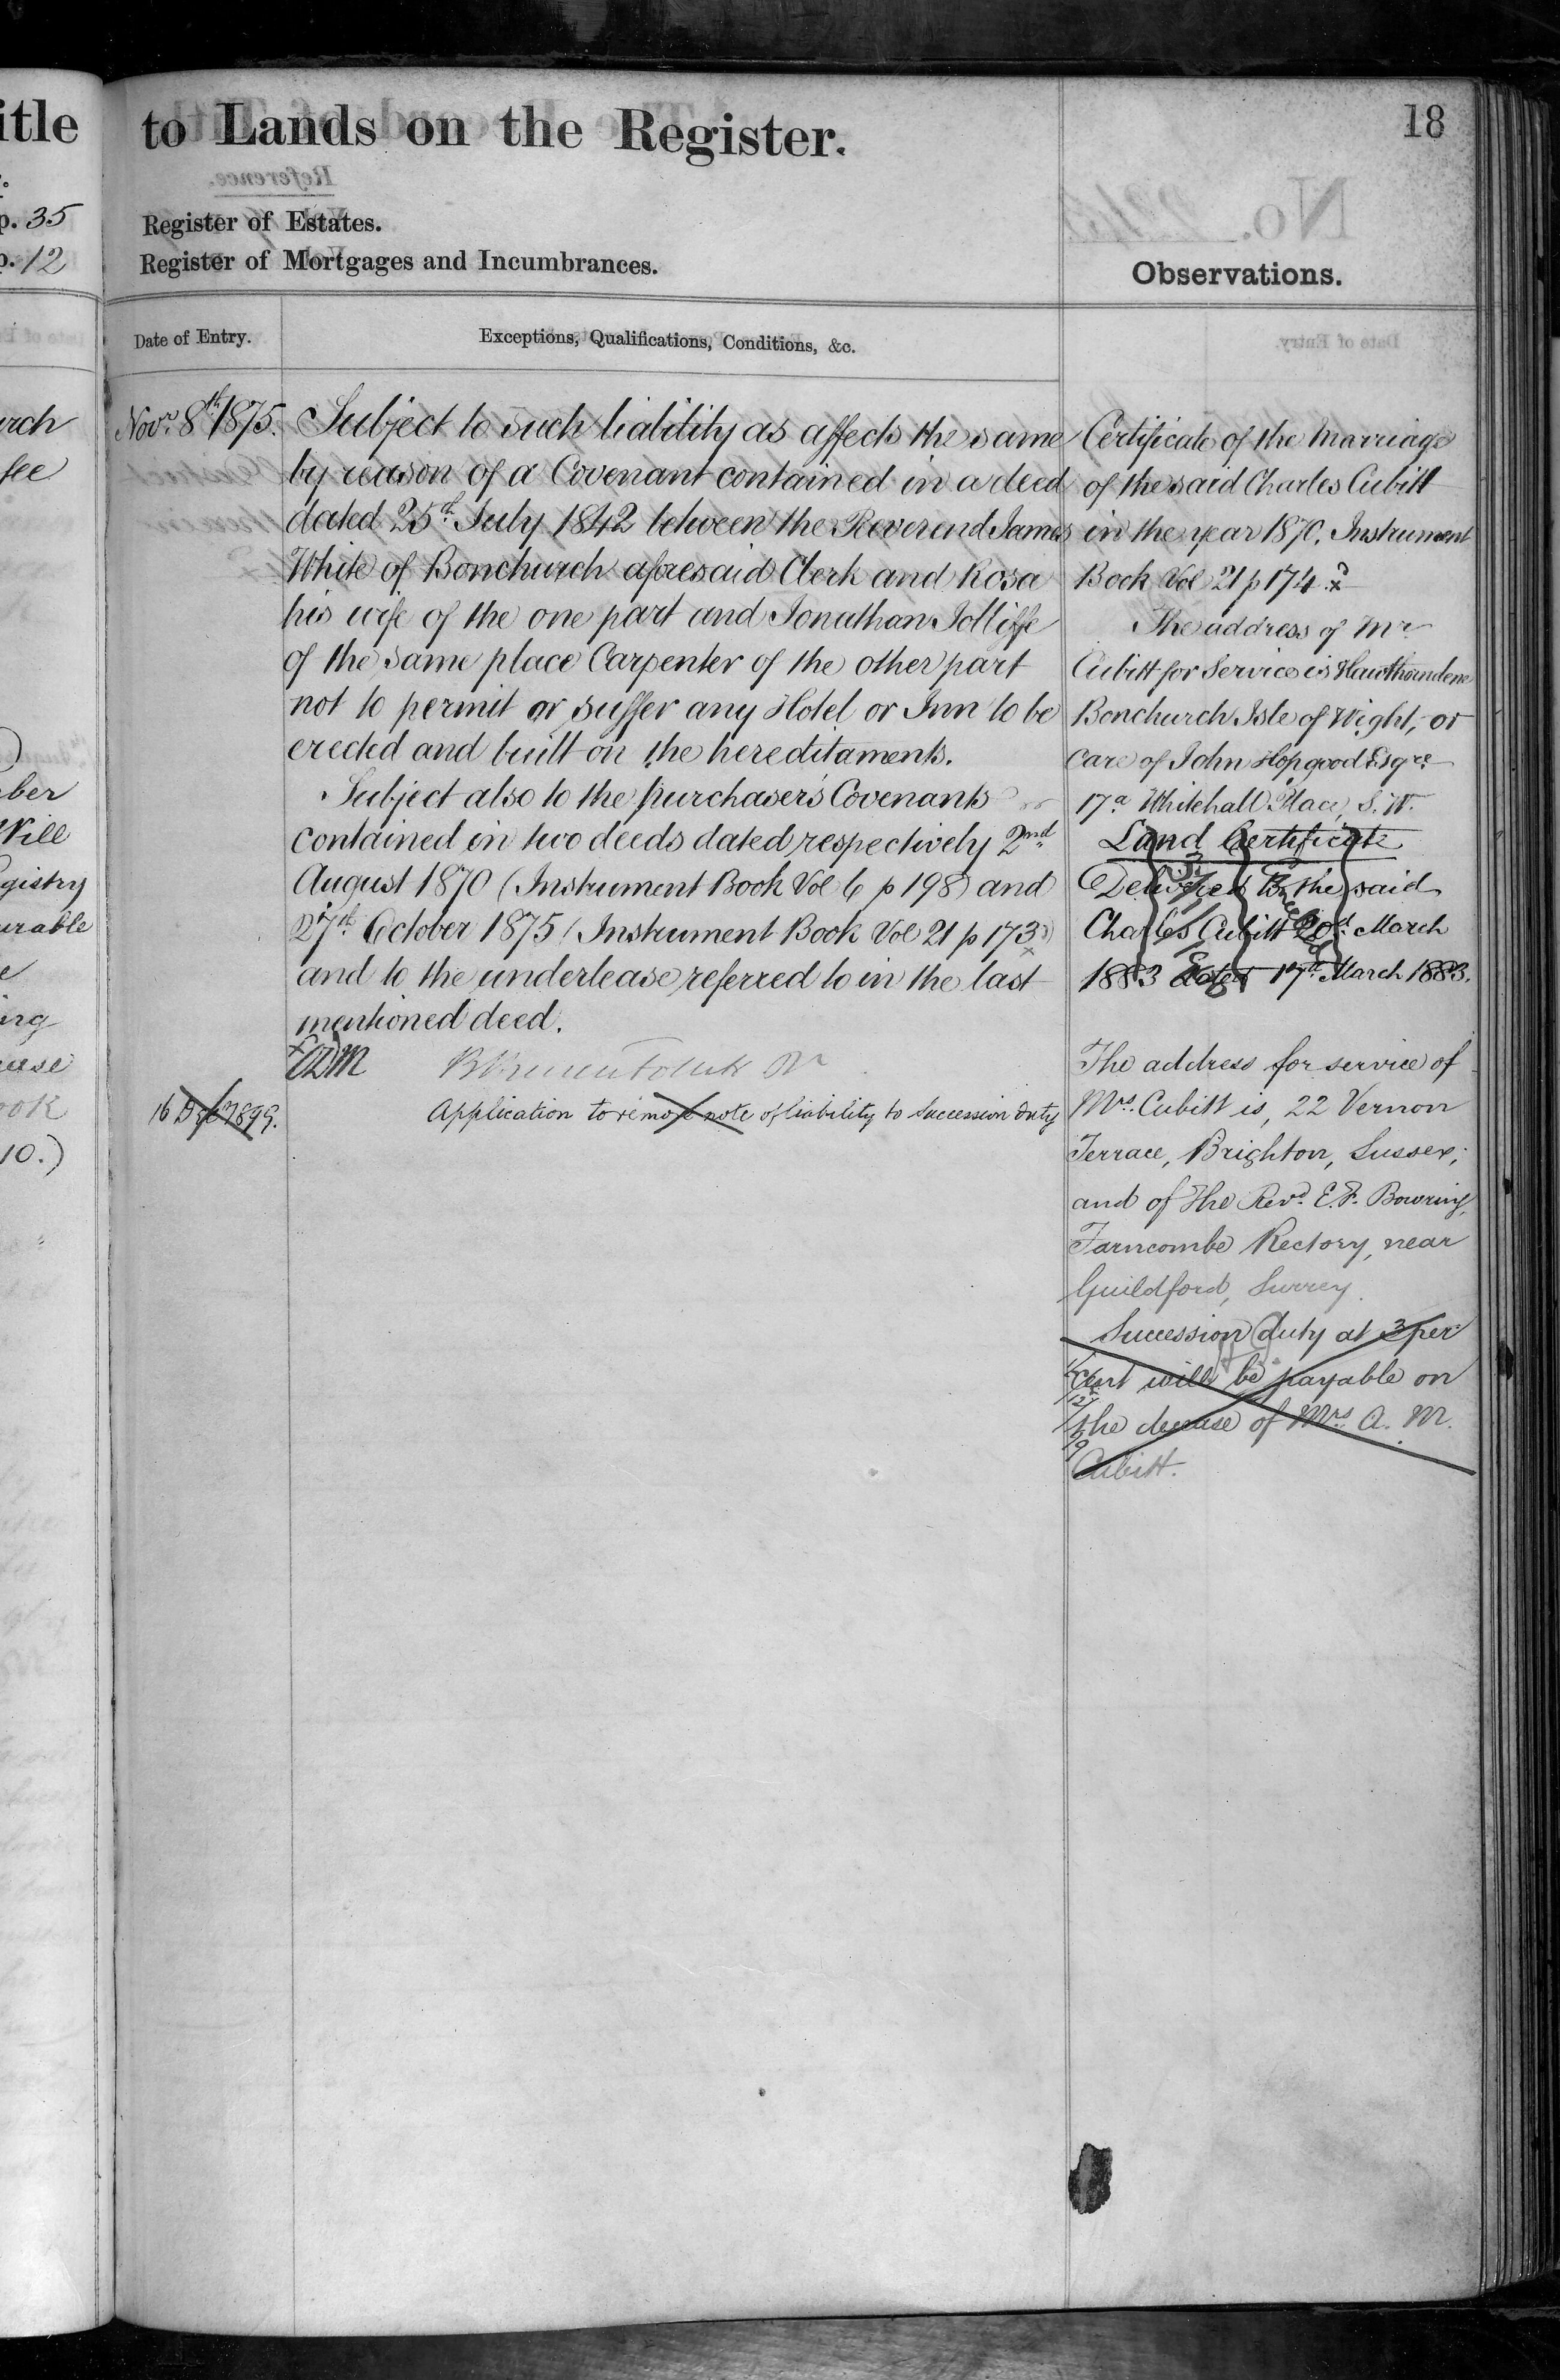 itle
p. 35
p. 12
urch
fee
ber
Will
gistry
urable
ing
ease
ook
10.)
to Lands on the Register.
18
Register of Estates.
Register of Mortgages and Incumbrances.
Observations.
Date of Entry.
Exceptions, Qualifications, Conditions, &c.
Novr. 8th 1875.
Subject to such liability as affects the same
by reason of a Covenant contained in a deed
dated 25th July 1842 between the Reverend James
White of Bonchurch aforesaid Clerk and Rosa
his wife of the one part and Jonathan Jolliffe
of the same place Carpenter of the other part
not to permit or suffer any Hotel or Inn to be
erected and built on the hereditaments.
Subject also to the purchaser's Covenants
contained in two deeds dated respectively 2nd
August 1870 (Instrument Book Vol 6 p 198) and
27th October 1875 (Instrument Book Vol 21 p 173)
and to the underlease referred to in the last
mentioned deed.
16 Dec 1899.
Application to remove note of liability to Succession duty
Certificate of the Marriage
of the said Charles Cubitt
in the year 1870. Instrument
Book Vol 21 p 174
The address of Mr.
Cubitt for Service is Hawthorndene
Bonchurch Isle of Wight, or
care of John Hopgood Esqre.
17a Whitehall Place, S.W.
Land Certificate
Delivered to the said
Charles Cubitt 20th March
1883 dated 17th March 1883.
The address for service of
Mrs. Cubitt is, 22 Vernon
Terrace, Brighton, Sussex;
and of the Revd. E. F. Bowring,
Farncombe Rectory, near
Guildford, Surrey.
Succession duty at 3 per
Cent will be payable on
the decease of Mrs. A. M.
Cubitt.